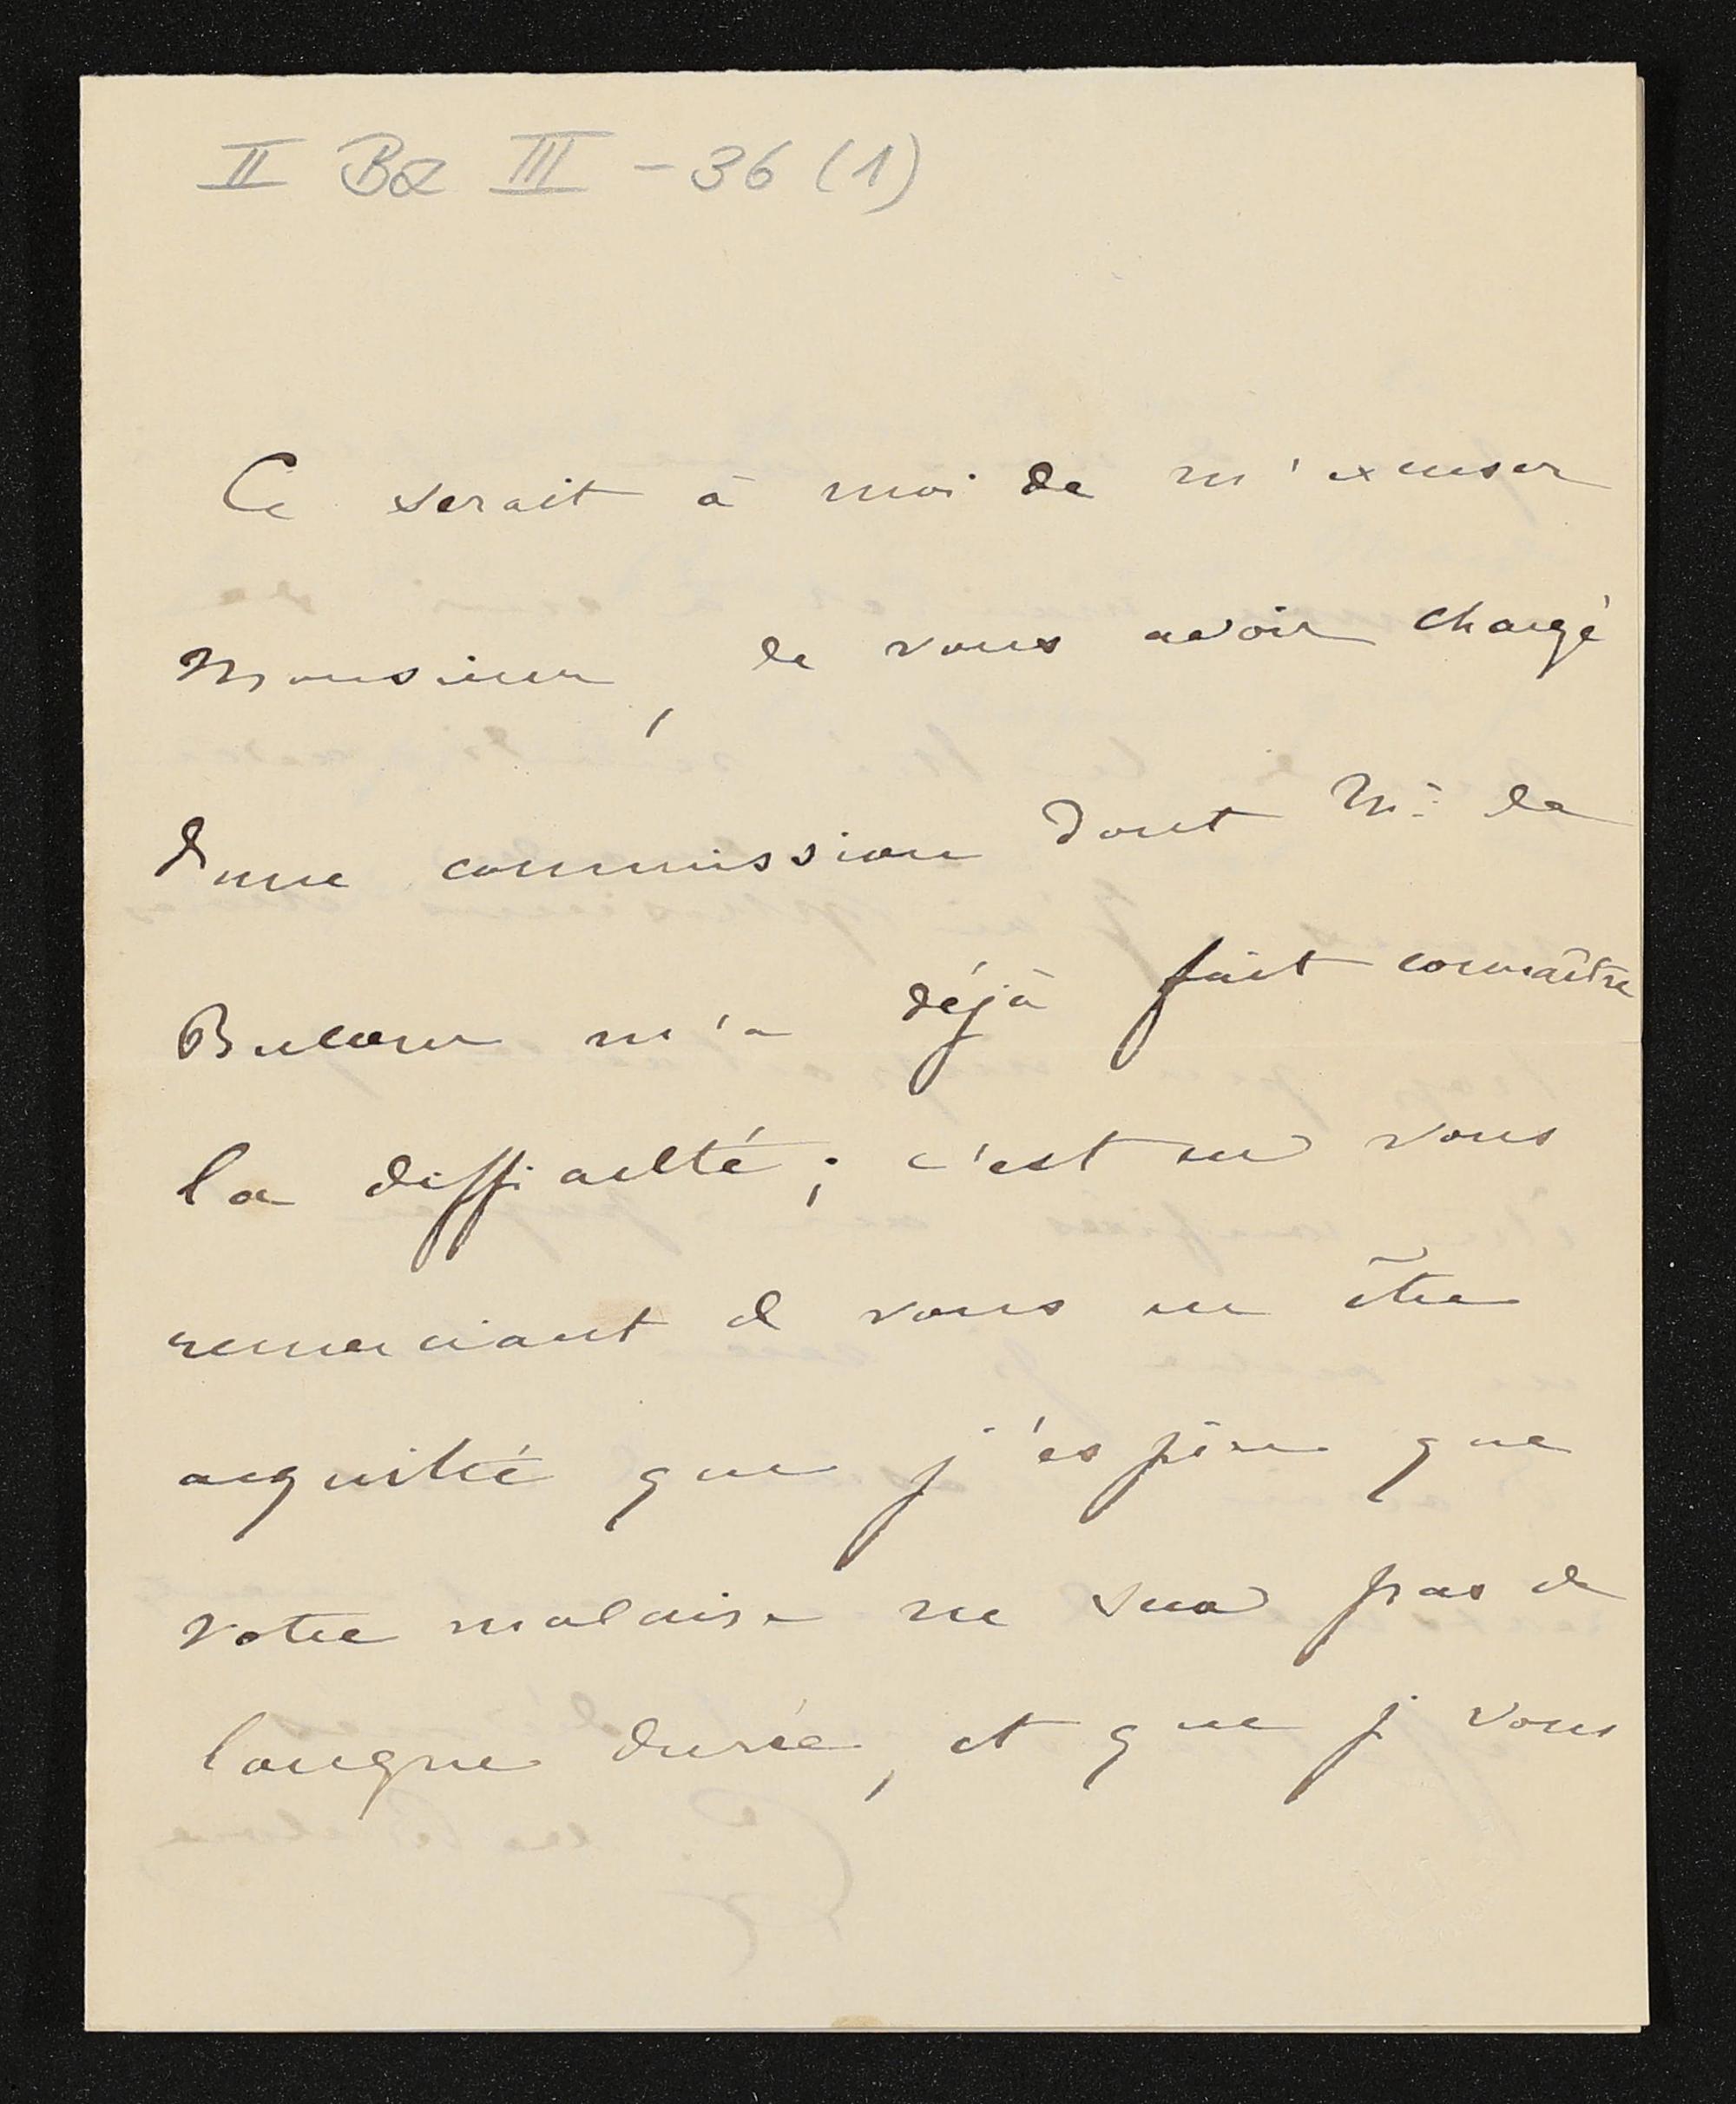 II Bα III - 36 (1)
Ce serait à moi de m'excuser
Monsieur, de vous avoir chargé
d'une commission dont Mr de
Bulow m'a déjà fait connaître
la difficulté ; c'est en vous
remerciant de vous en être
acquitté que j'espère que
votre malaise ne sera pas de
longue durée, et que je vous